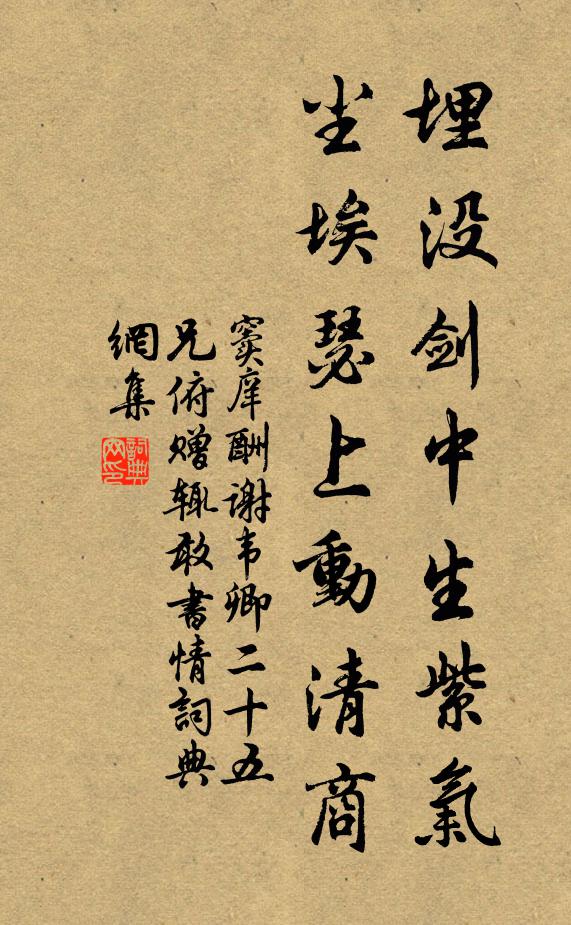 埋没剑中生紫氣
尘埃瑟上動清商
窦庠酬谢韦卿二十五
兄俯赠辄敢書情詞典
網集
詞典网印